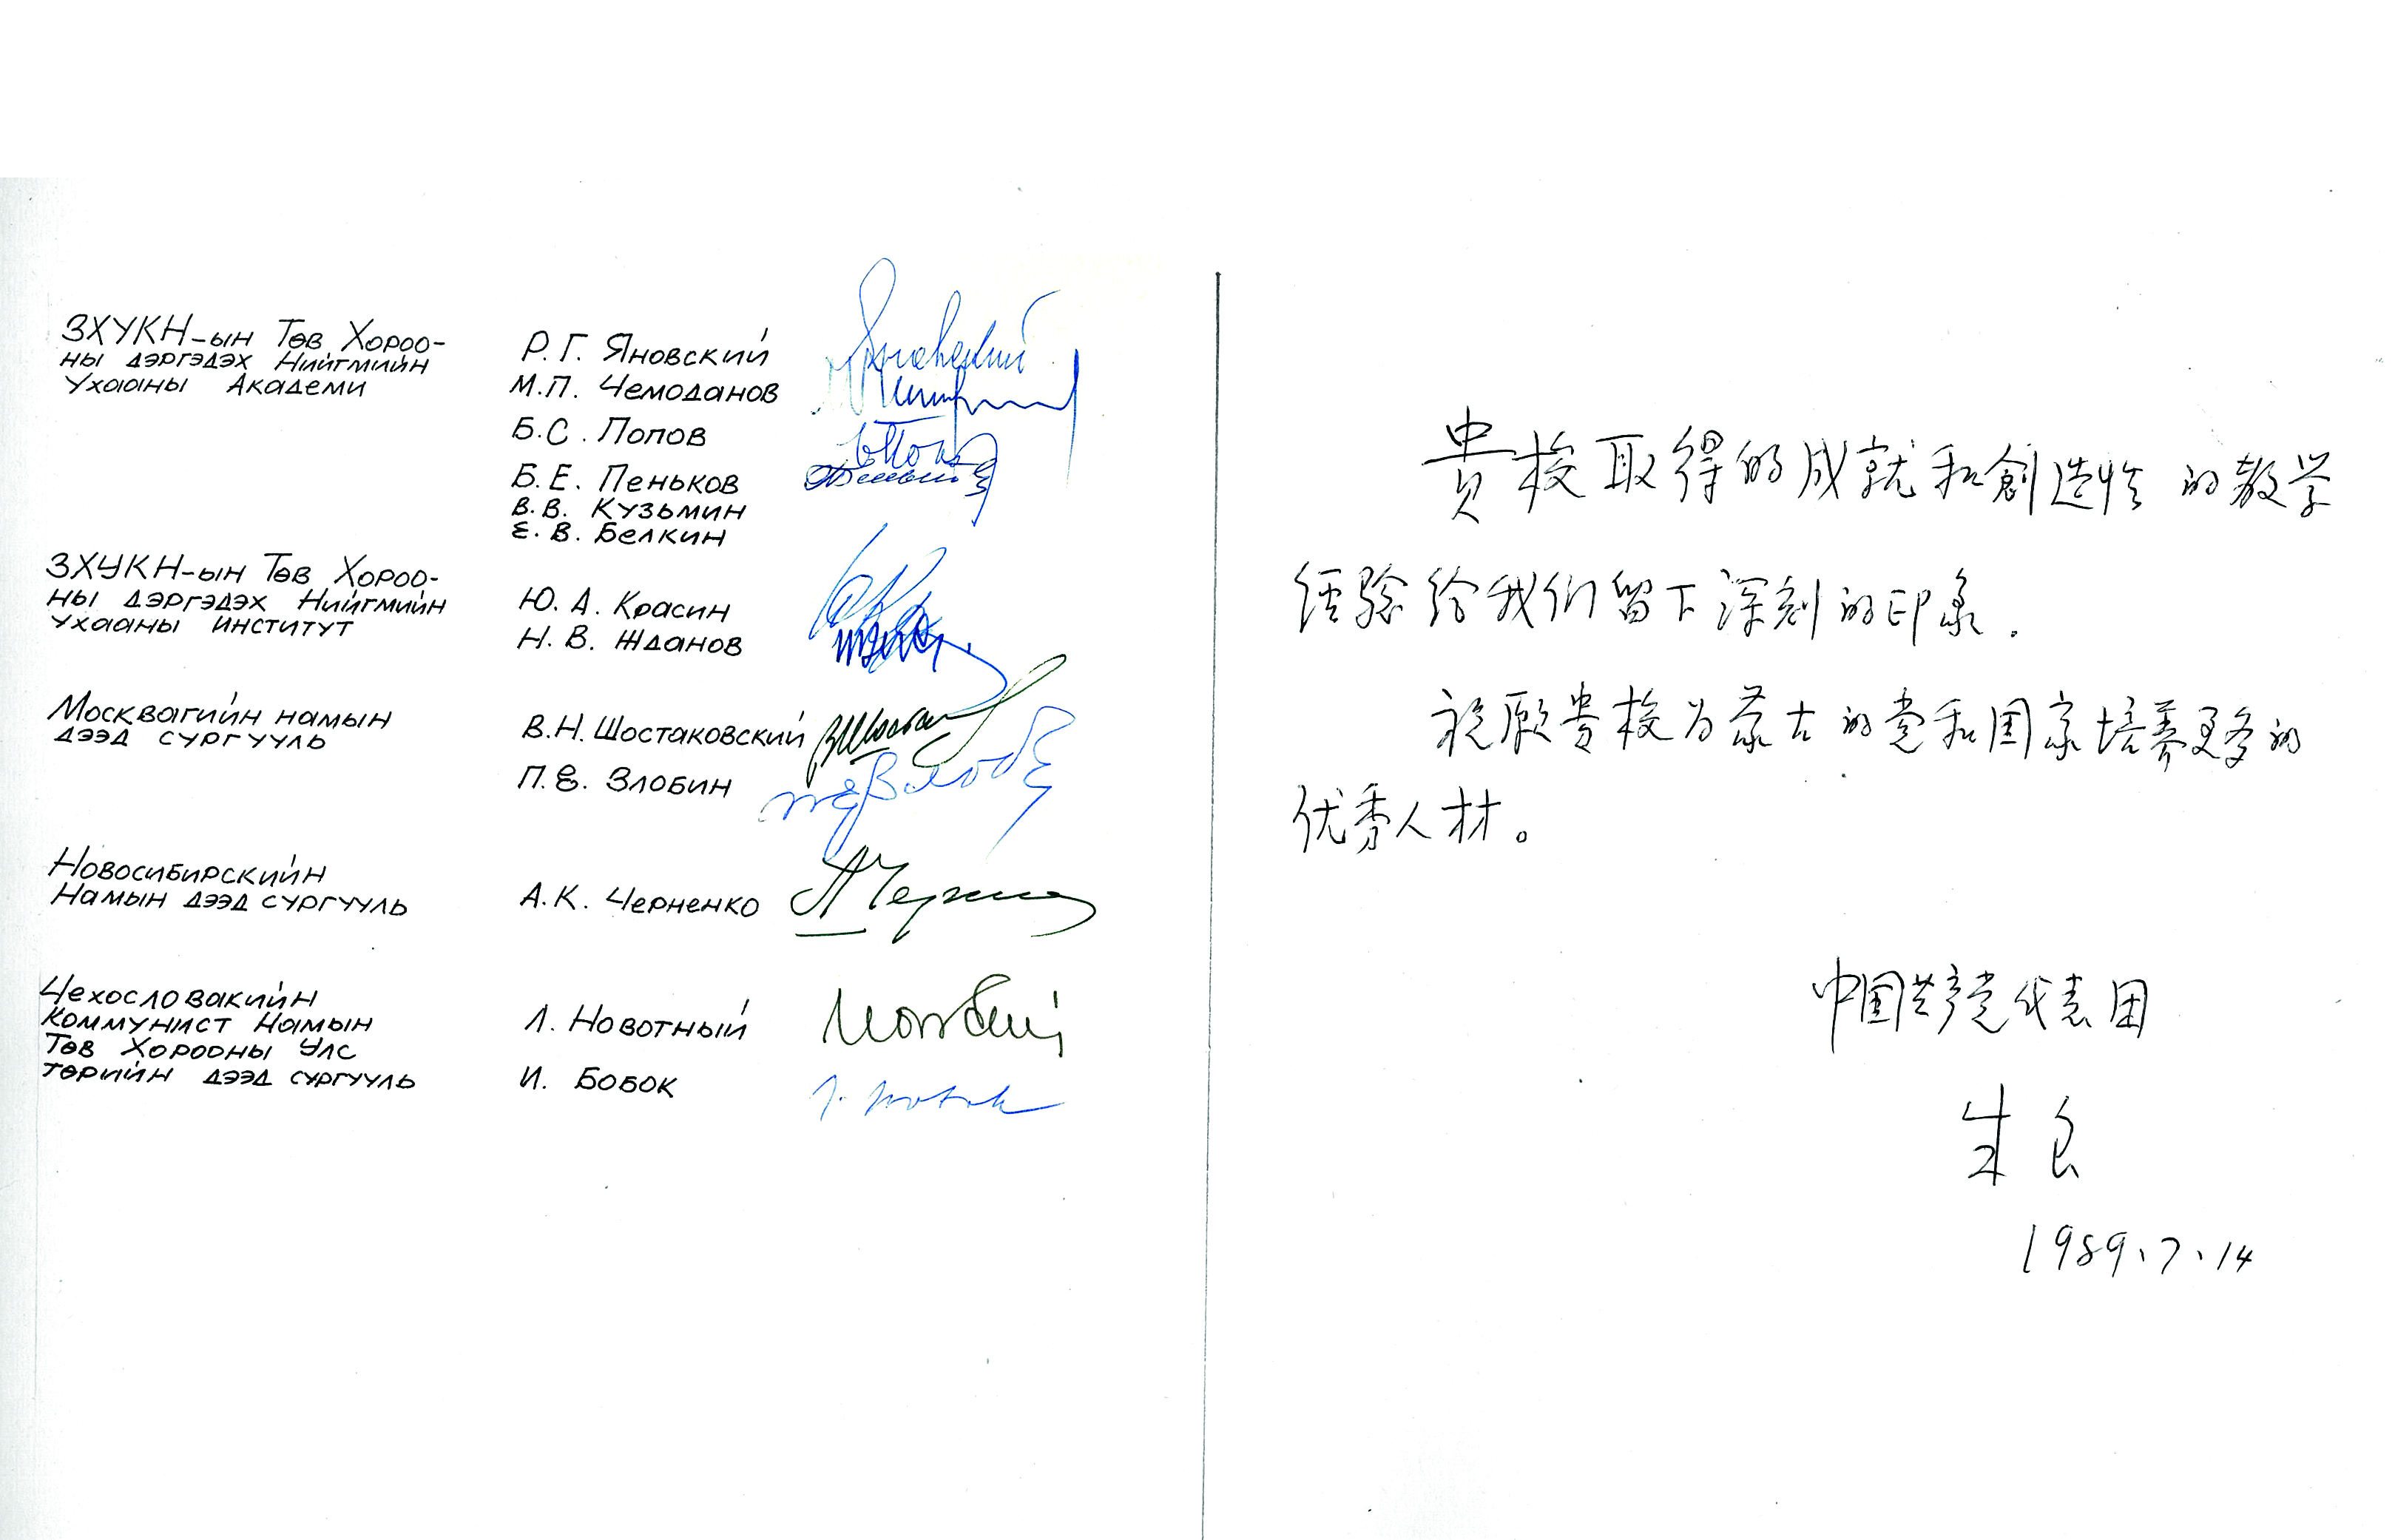 ЗХУКН-ын Төв Хороо-
ны дэргэдэх Нийгмийн
Ухааны Академи
Р. Г. Яновский
М.П. Чемоданов
Б.С. Попов
Б.Е. Пеньков
В.В. Кузьмин
Е.В. Белкин
ЗХУКН-ын Төв Хороо-
ны дэргэдэх Нийгмийн
Ухааны институт
Ю.А. Красин
Н.В. Жданов
Москвагийн намын
дээд сургууль
В.Н. Шостаковский
П.Е. Злобин
Новосибирскийн
Намын дээд сургууль
А.К. Черненко
Чехословакийн
коммунист Намын
Төв Хорооны Улс
төрийн дээд сургууль
Л. Новотный
И. Бобок
貴校取得的成就和創造性的教学
经验给我们留下深刻的印象.
祝愿贵校为蒙古的党和国家培养更多的
优秀人材。
中国共产党代表团
朱良
1989、7、14